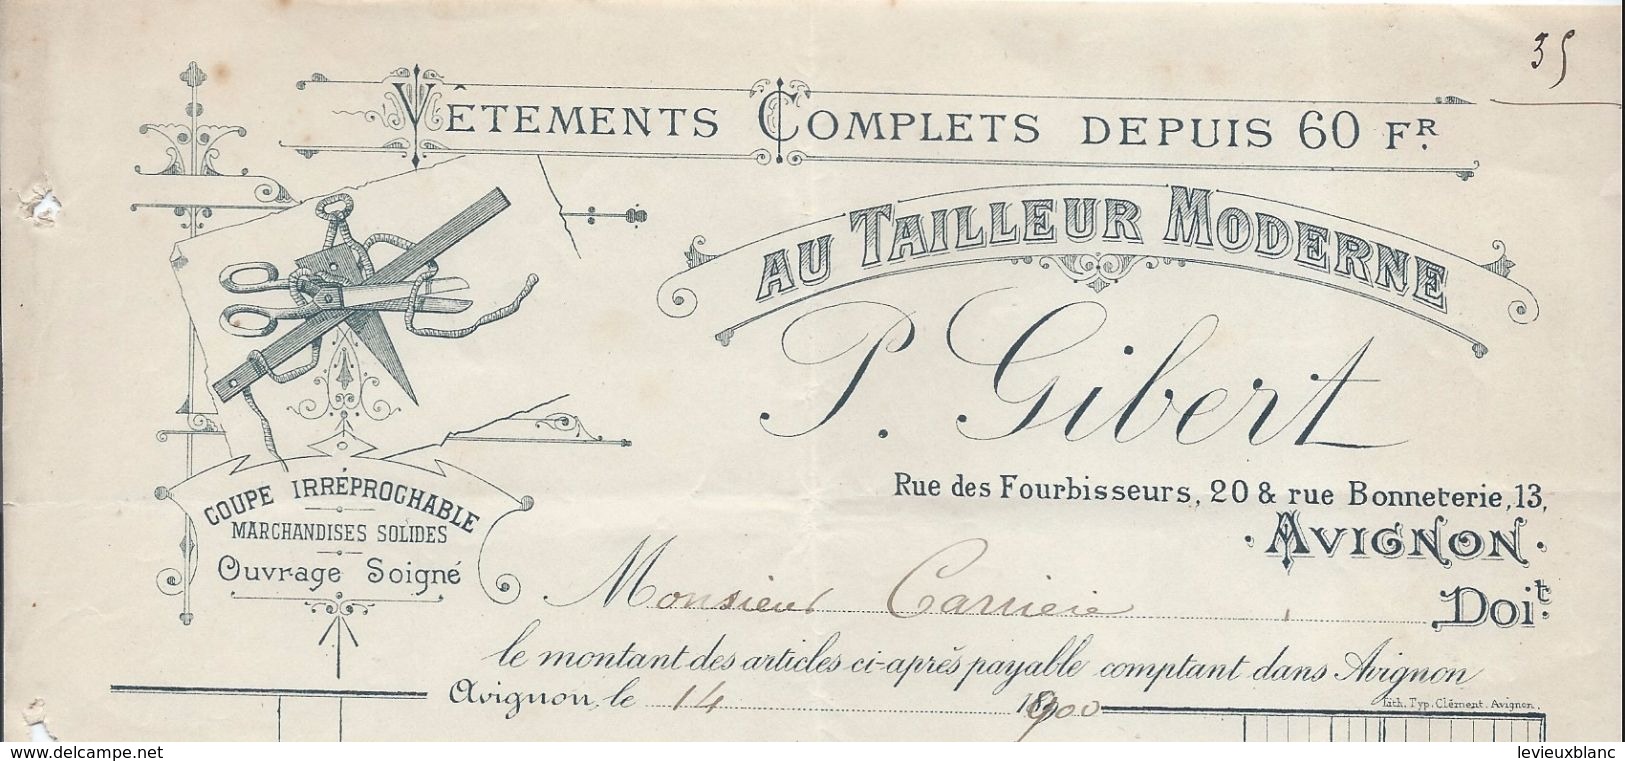 35
VÊTEMENTS COMPLETS DEPUIS 60 FR.
AU TAILLEUR MODERNE
P. Gibert
Rue des Fourbisseurs, 20 & rue Bonneterie, 13,
AVIGNON.
COUPE IRRÉPROCHABLE
MARCHANDISES SOLIDES
Ouvrage Soigné
Monsieur Carriere Doit.
le montant des articles ci-après payable comptant dans Avignon
Avignon, le 14 1900
Lith. Typ. Clément. Avignon.
www.delcampe.net
levieuxblanc